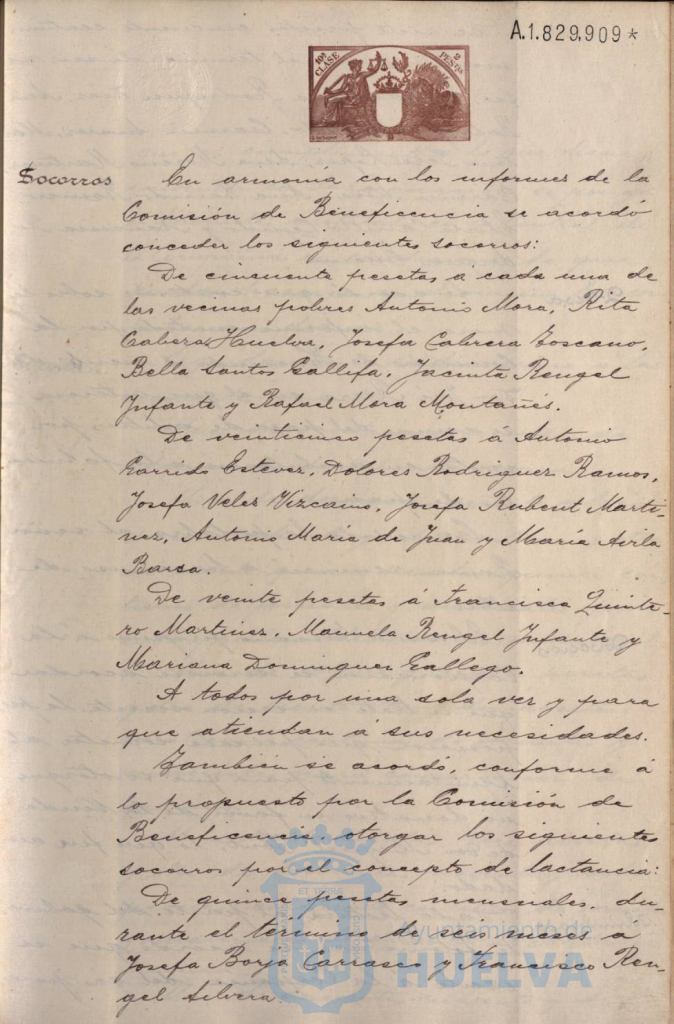 A.1.829,909*
10ª CLASE 2 PESTAS
Socorros
En armonía con los informes de la
Comisión de Beneficencia se acordó
conceder los siguientes socorros:
De cincuenta pesetas á cada una de
las vecinas pobres Antonio Mora, Rita
Cabera Huelva, Josefa Cabrera Toscano,
Bella Santos Gallifa, Jacinta Rengel
Infante y Rafael Mora Montañés.
De veinticinco pesetas á Antonio
Garrido Estevez, Dolores Rodriguez Ramos,
Josefa Velez Vizcaino, Josefa Rubent Marti-
nez, Antonio Maria de Juan y María Avila
Barsa.
De veinte pesetas á Francisca Quinte-
ro Martinez, Manuela Rengel Infante y
Mariana Dominguez Gallego.
A todos por una sola vez y para
que atiendan á sus necesidades.
También se acordó, conforme á
lo propuesto por la Comisión de
Beneficencia, otorgar los siguientes
socorros por el concepto de lactancia:
De quince pesetas mensuales, du-
rante el término de seis meses á
Josefa Borja Carrasco y Francisco Ren-
gel Silvera.
Ayuntamiento de
HUELVA